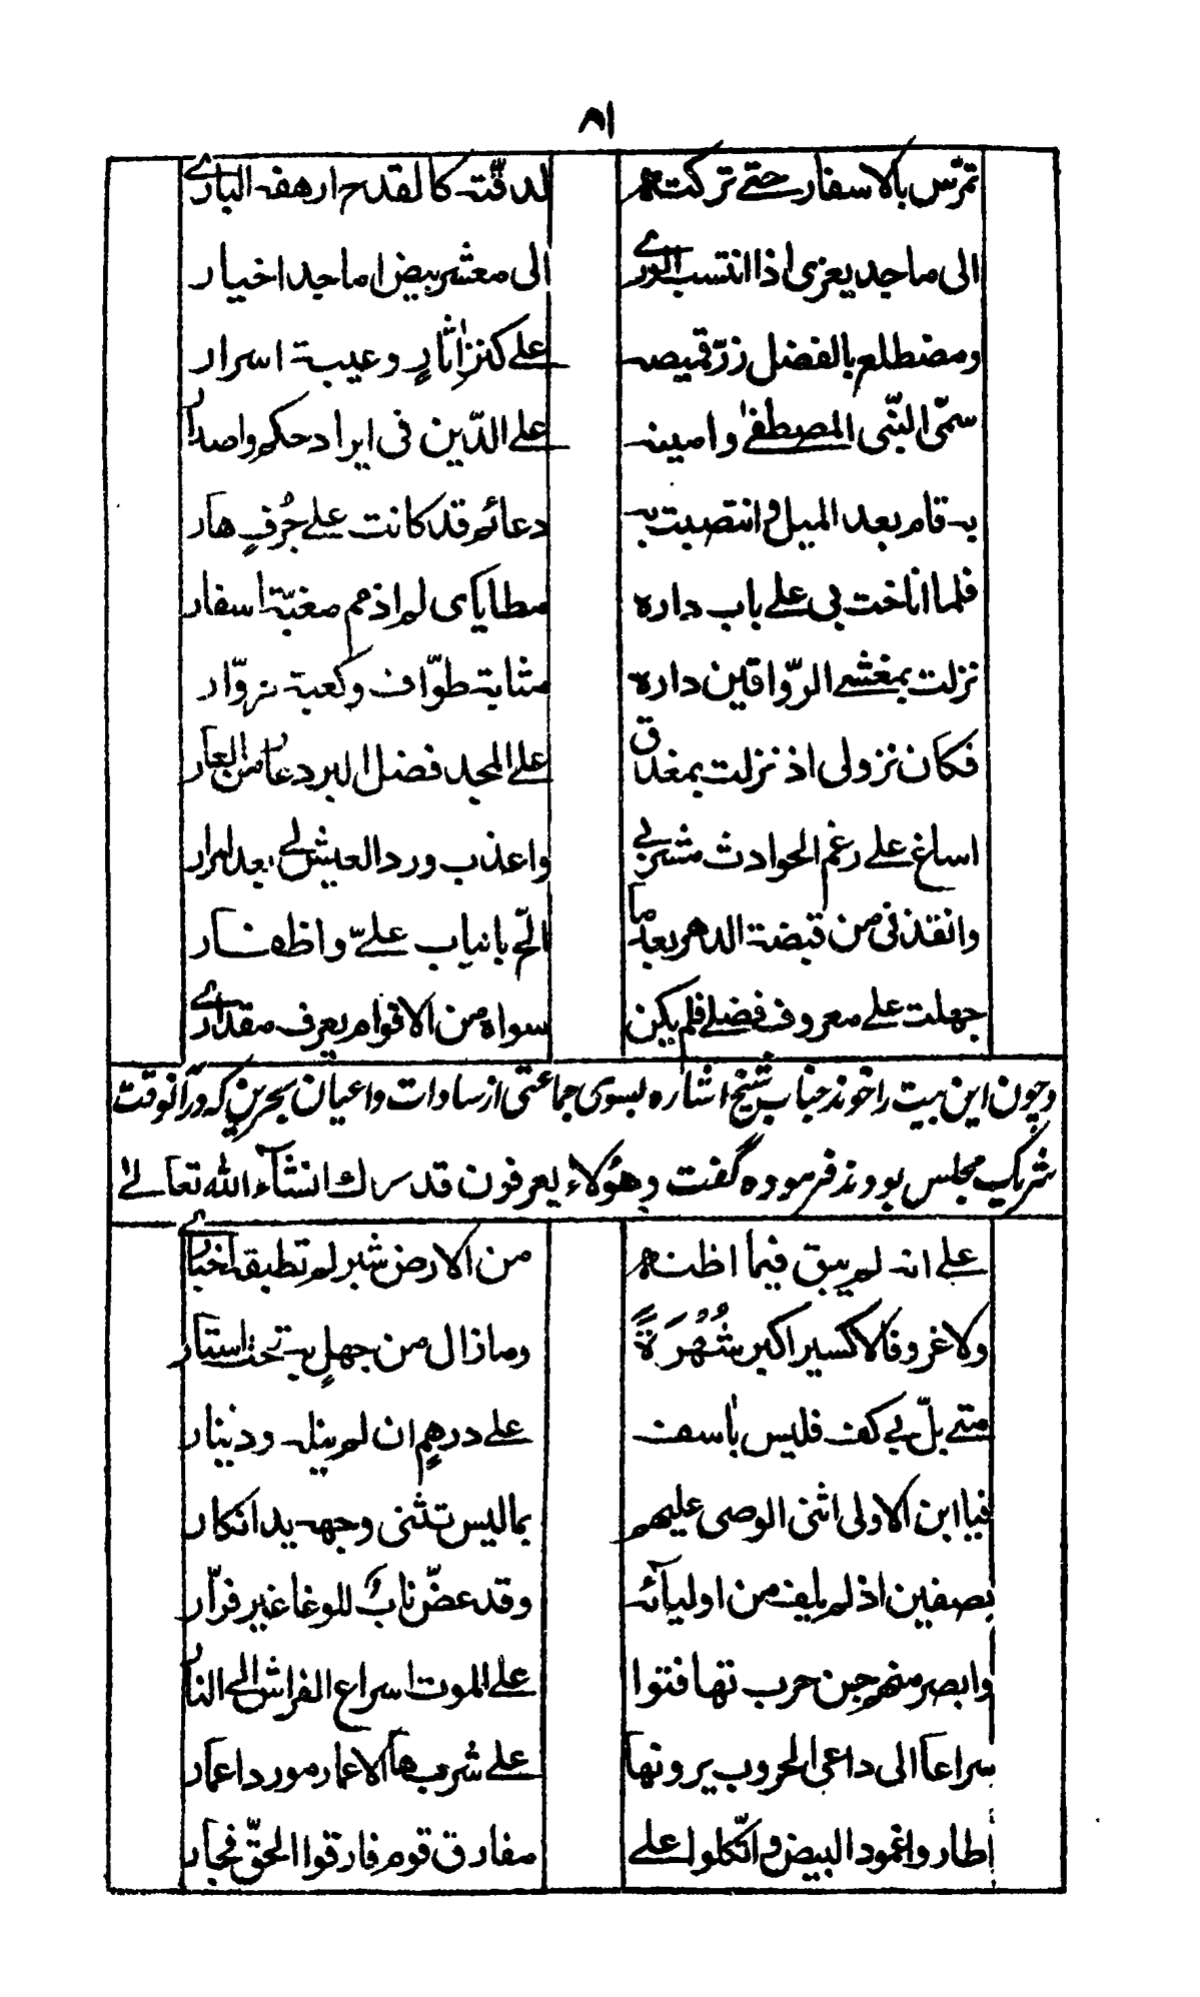 ٨١
تمرّس بالاسفار حتى تركته لدقّته كالقدح ارهفه الباري
الى ماجد يعزى اذا انتسب الورى الى معشر بيض اماجد اخيار
ومضطلع بالفضل زرّ قميصه على كنز اٰثارٍ وعيبة اسرار
سمّى النّبى المصطفى وامينه على الدّين فى ايراد حكم واصدار
به قام بعد الميل وانتصبت به دعائم قد كانت على جُرفٍ هار
فلما اناخت بى على باب داره مطاياى لم اذمم مغبّة اسفار
نزلت بمغشى الرّواقين داره مثابة طوّاف وكعبة زوّار
فكان نزولى اذ نزلت بمغدق على المجد فضل البرد عار من العار
اساغ على رغم الحوادث مشربى واعذب ورد العيش لى بعد امرار
وانقذنى من قبضة الدهر بعدما الحّ بانياب علىّ واظفار
جهلت على معروف فضلى فلم يكن سواه من الاقوام يعرف مقدارى
وچون این بیت را خوند جناب شیخ اشاره بسوی جماعتی از ساوات واعیان بحرین که در آنوقت
شریک مجلس بووند فرموده گفت وهؤلاء يعرفون قدرك انشآء الله تعالىٰ
على انه لم يبق فيما اظنه من الارض شبر لم تطبقه اخبارى
ولا غرو فالاكسير اكبر شُهُرَةً ومازال من جهلٍ به تحت استار
متى بلّ بى كفّ فليس باٰسف على درهمٍ ان لم ينله ودينار
فيا ابن الاولى اثنى الوصى عليهم بما ليس تثنى وجهه يد انكار
بصفين اذ لم يلف من اوليآئه وقد عضّ نابٌ للوغا غير فرّار
وابصر منهم جن حرب تهافتوا على الموت اسراع الفراش الى النار
سراعاً الى داعى الحروب يرونها على شُربها الاعمار مورد اعمار
اطاروا غمود البيض واتّكلوا على مفارق قوم فارقوا الحقّ فجار